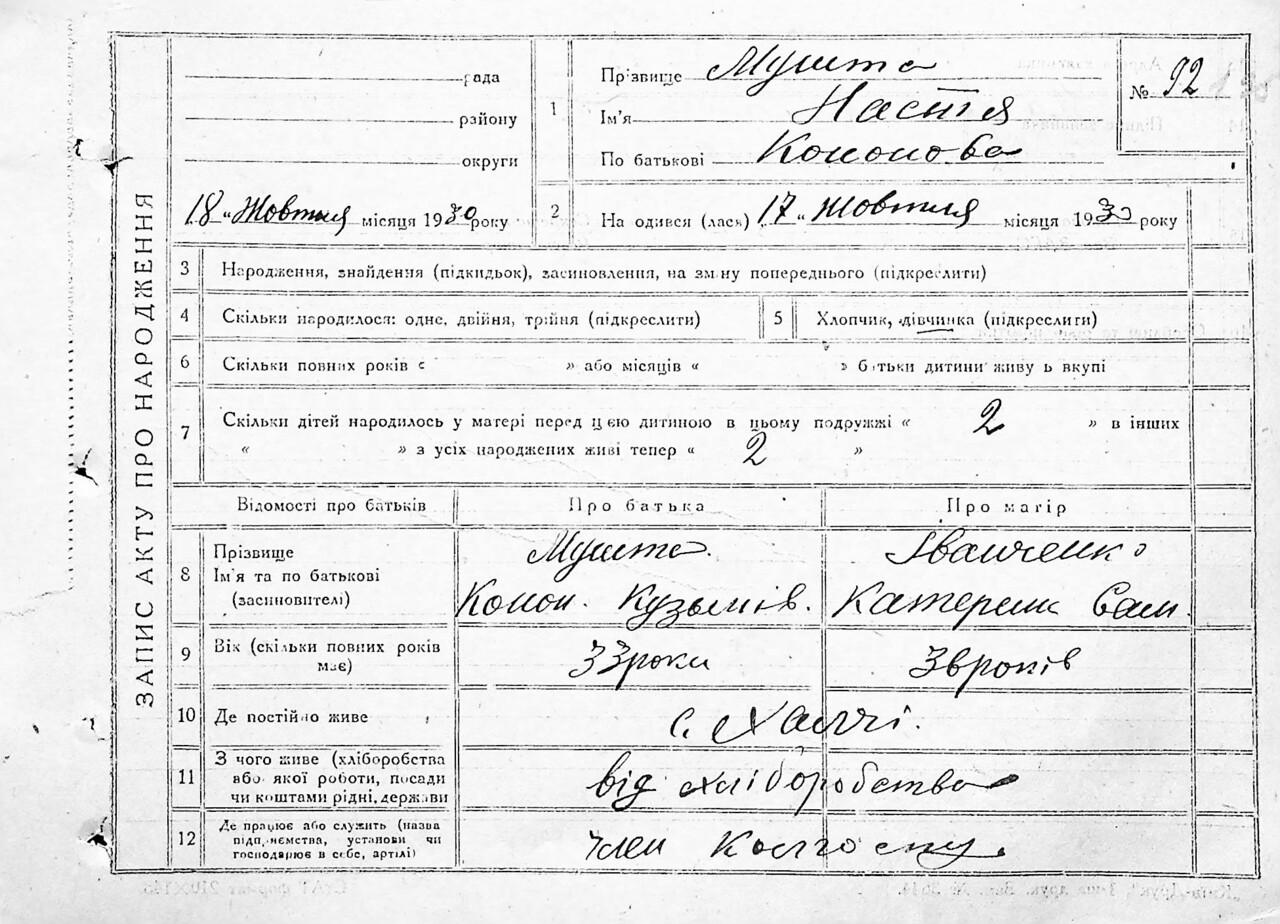 ЗАПИС АКТУ ПРО НАРОДЖЕННЯ
рада
району
округи
18 „ Жовтня місяця 1930 року
1 Прізвище Мушта
Ім'я Настя
По батькові Кононова
№ 92
2 На одився (лася) 17 „ Жовтня місяця 1930 року
3 Народження, знайдення (підкидьок), засиновлення, на зміну попереднього (підкреслити)
4 Скільки народилося: одне, двійня, трійня (підкреслити)
5 Хлопчик, дівчинка (підкреслити)
6 Скільки повних років « » або місяців « » батьки дитини живу ь вкупі
7 Скільки дітей народилось у матері перед цею дитиною в цьому подружжі « 2 » в інших
« » з усіх народжених живі тепер « 2 »
Відомості про батьків Про батька Про матір
8 Прізвище Мушта Іванченко
Ім'я та по батькові Конон. Кузьмів. Катерина Сам.
(засиновителі)
9 Вік (скільки повних років має) 33 роки років
10 Де постійно живе с. Халчі.
11 З чого живе (хліборобства
або якої роботи, посади від хліборобства
чи коштами рідні, держави
12 Де працює або служить (назва
підприємства, установи чи член Колгоспу
господарює в себе, артілі)